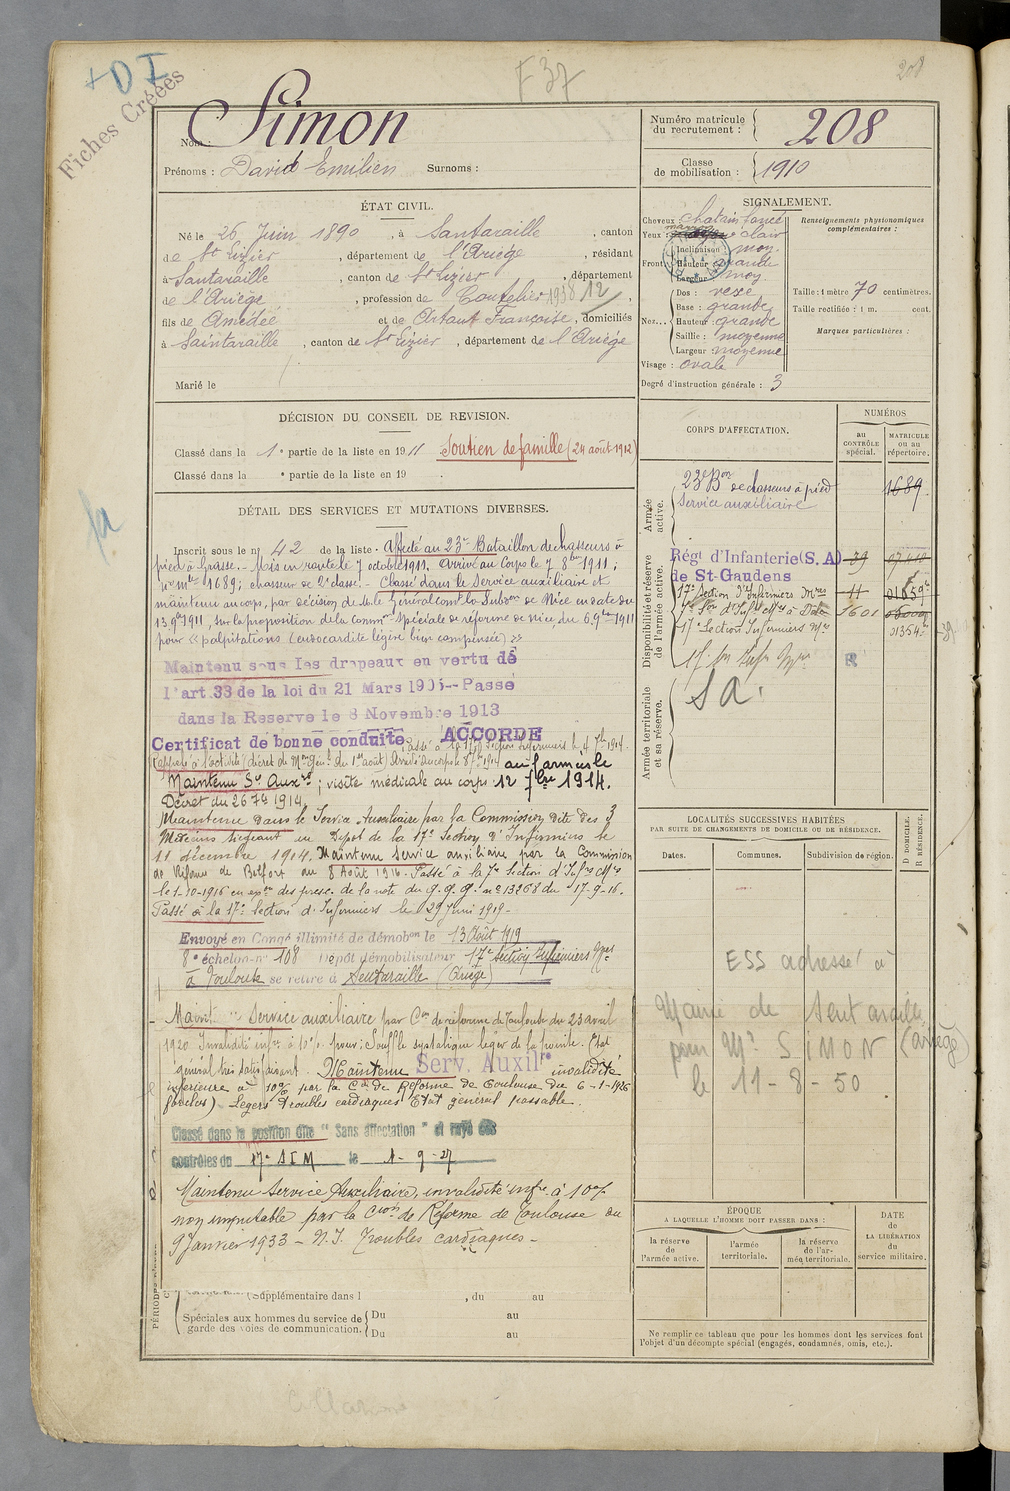 + D I
Fiches Créées
F 37
208
Nom : Simon
Prénoms : David Emilien Surnoms :
Numéro matricule du recrutement : 208
Classe de mobilisation : 1910
ÉTAT CIVIL.
Né le 26 Juin 1890, à Santaraille, canton
de St Lizier, département de l'Ariège, résidant
à Santaraille, canton de St Lizier, département
de l'Ariège, profession de Coutelier 1938 12,
fils de Amédée et de Artaut Françoise, domiciliés
à Saintaraille, canton de St Lizier, département de l'Ariège
Marié le
SIGNALEMENT.
Cheveux : chatain foncé
Yeux : marron clair
Front : Inclinaison moy.
Hauteur grande
Largeur moy
Nez... Dos : vexe
Base : grande
Hauteur : grande
Saillie : moyenne
Largeur moyenne
Visage : ovale
Degré d'instruction générale : 3
Renseignements physionomiques complémentaires :
Taille : 1 mètre 70 centimètres.
Taille rectifiée : 1 m. cent.
Marques particulières :
DÉCISION DU CONSEIL DE REVISION.
Classé dans la 1e partie de la liste en 1911 Soutien de famille (24 août 1912)
Classé dans la e partie de la liste en 19 .
DÉTAIL DES SERVICES ET MUTATIONS DIVERSES.
Inscrit sous le n° 42 de la liste. Affecté au 23e Bataillon de chasseurs à
pied à Grasse. Mis en route le 7 octobre 1911. Arrivé au Corps le 7 8bre 1911;
no mle 1689; chasseur de 2e classe. Classé dans le Service auxiliaire et
maintenu au corps, par décision de M. le Général comt la Subon de Nice en date du
13 9bre 1911, sur la proposition de la Comm spéciale de réforme de Nice du 6 9bre 1911
pour « palpitations (endocardite légère bien compensée) »
Maintenu sous les drapeaux en vertu de
l'art. 33 de la loi du 21 Mars 1905--Passé
dans la Reserve le 8 Novembre 1913
Certificat de bonne conduite ACCORDE
Passé à la 17e Section Infirmiers le 4 7bre 1914.
Rappelé à l'activité (décret de Mon Génle du 1er août) Arrivé au corps le 8 7bre 1914 aux armées le
Maintenu Sce Auxre; visite médicale au corps 12 7bre 1914.
Décret du 26 7bre 1914.
Maintenu dans le Service Auxiliaire par la Commission dite des 3
Médecins siégeant au Dépôt de la 17e Section d'Infirmiers le
11 décembre 1914. Maintenu service auxiliaire par la Commission
de Réforme de Belfort du 8 Août 1916. Passé à la 7e Section d'Infres Mres
le 1-10-1916 en exon des presc. de la note du G.Q.G. n° 13268 du 17-9-16.
Passé à la 17e Section d'Infirmiers le 29 Juin 1919-
Envoyé en Congé illimité de démobon le 13 Août 1919
8e échelon n° 108 Dépôt démobilisateur 17e Section Infirmiers Mres
à Toulouse se retire à Sentaraille (Ariège)
Maint " Service auxiliaire par Con de réforme de Toulouse du 23 avril
1920 Invalidité infre à 10% pour : Souffle systolique léger de la pointe. Etat
général très satisfaisant. Maintenu Serv. Auxilre invalidité
inférieure à 10% par la Con de Réforme de Toulouse du 6-1-1926
Légers troubles cardiaques Etat général passable.
Classé dans la position dite "Sans affectation" et rayé des
contrôles du 17e S I M le 1-9-27
Maintenu Service Auxiliaire, invalidité infre à 10%
non imputable par la Cion de Réforme de Toulouse du
9 Janvier 1933 - N.I. Troubles cardiaques -
PÉRIODES
Supplémentaire dans l , du au
Spéciales aux hommes du service de garde des voies de communication. Du au
Du au
CORPS D'AFFECTATION.
NUMÉROS
au CONTRÔLE spécial.
MATRICULE ou au répertoire.
Armée active.
23e Bon de chasseurs à pied 1689
Service auxiliaire
Disponibilité et réserve de l'armée active.
Régt d'Infanterie (S. A) 39
de St-Gaudens
17e Section d'Infirmiers Mres 11
7e Son d'Infres Mres à Dôle 1601
17e Section Infirmiers Mres 01354
Armée territoriale et sa réserve.
S A.
LOCALITÉS SUCCESSIVES HABITÉES
PAR SUITE DE CHANGEMENTS DE DOMICILE OU DE RÉSIDENCE.
Dates. Communes. Subdivision de région.
D DOMICILE.
R RÉSIDENCE.
ESS adressé à
Mairie de Sentaraille
pour Mr SIMON (Ariège)
le 11-8-50
ÉPOQUE
A LAQUELLE L'HOMME DOIT PASSER DANS :
la réserve de l'armée active.
l'armée territoriale.
la réserve de l'armée territoriale.
DATE de LA LIBÉRATION du service militaire.
Ne remplir ce tableau que pour les hommes dont les services font
l'objet d'un décompte spécial (engagés, condamnés, omis, etc.).